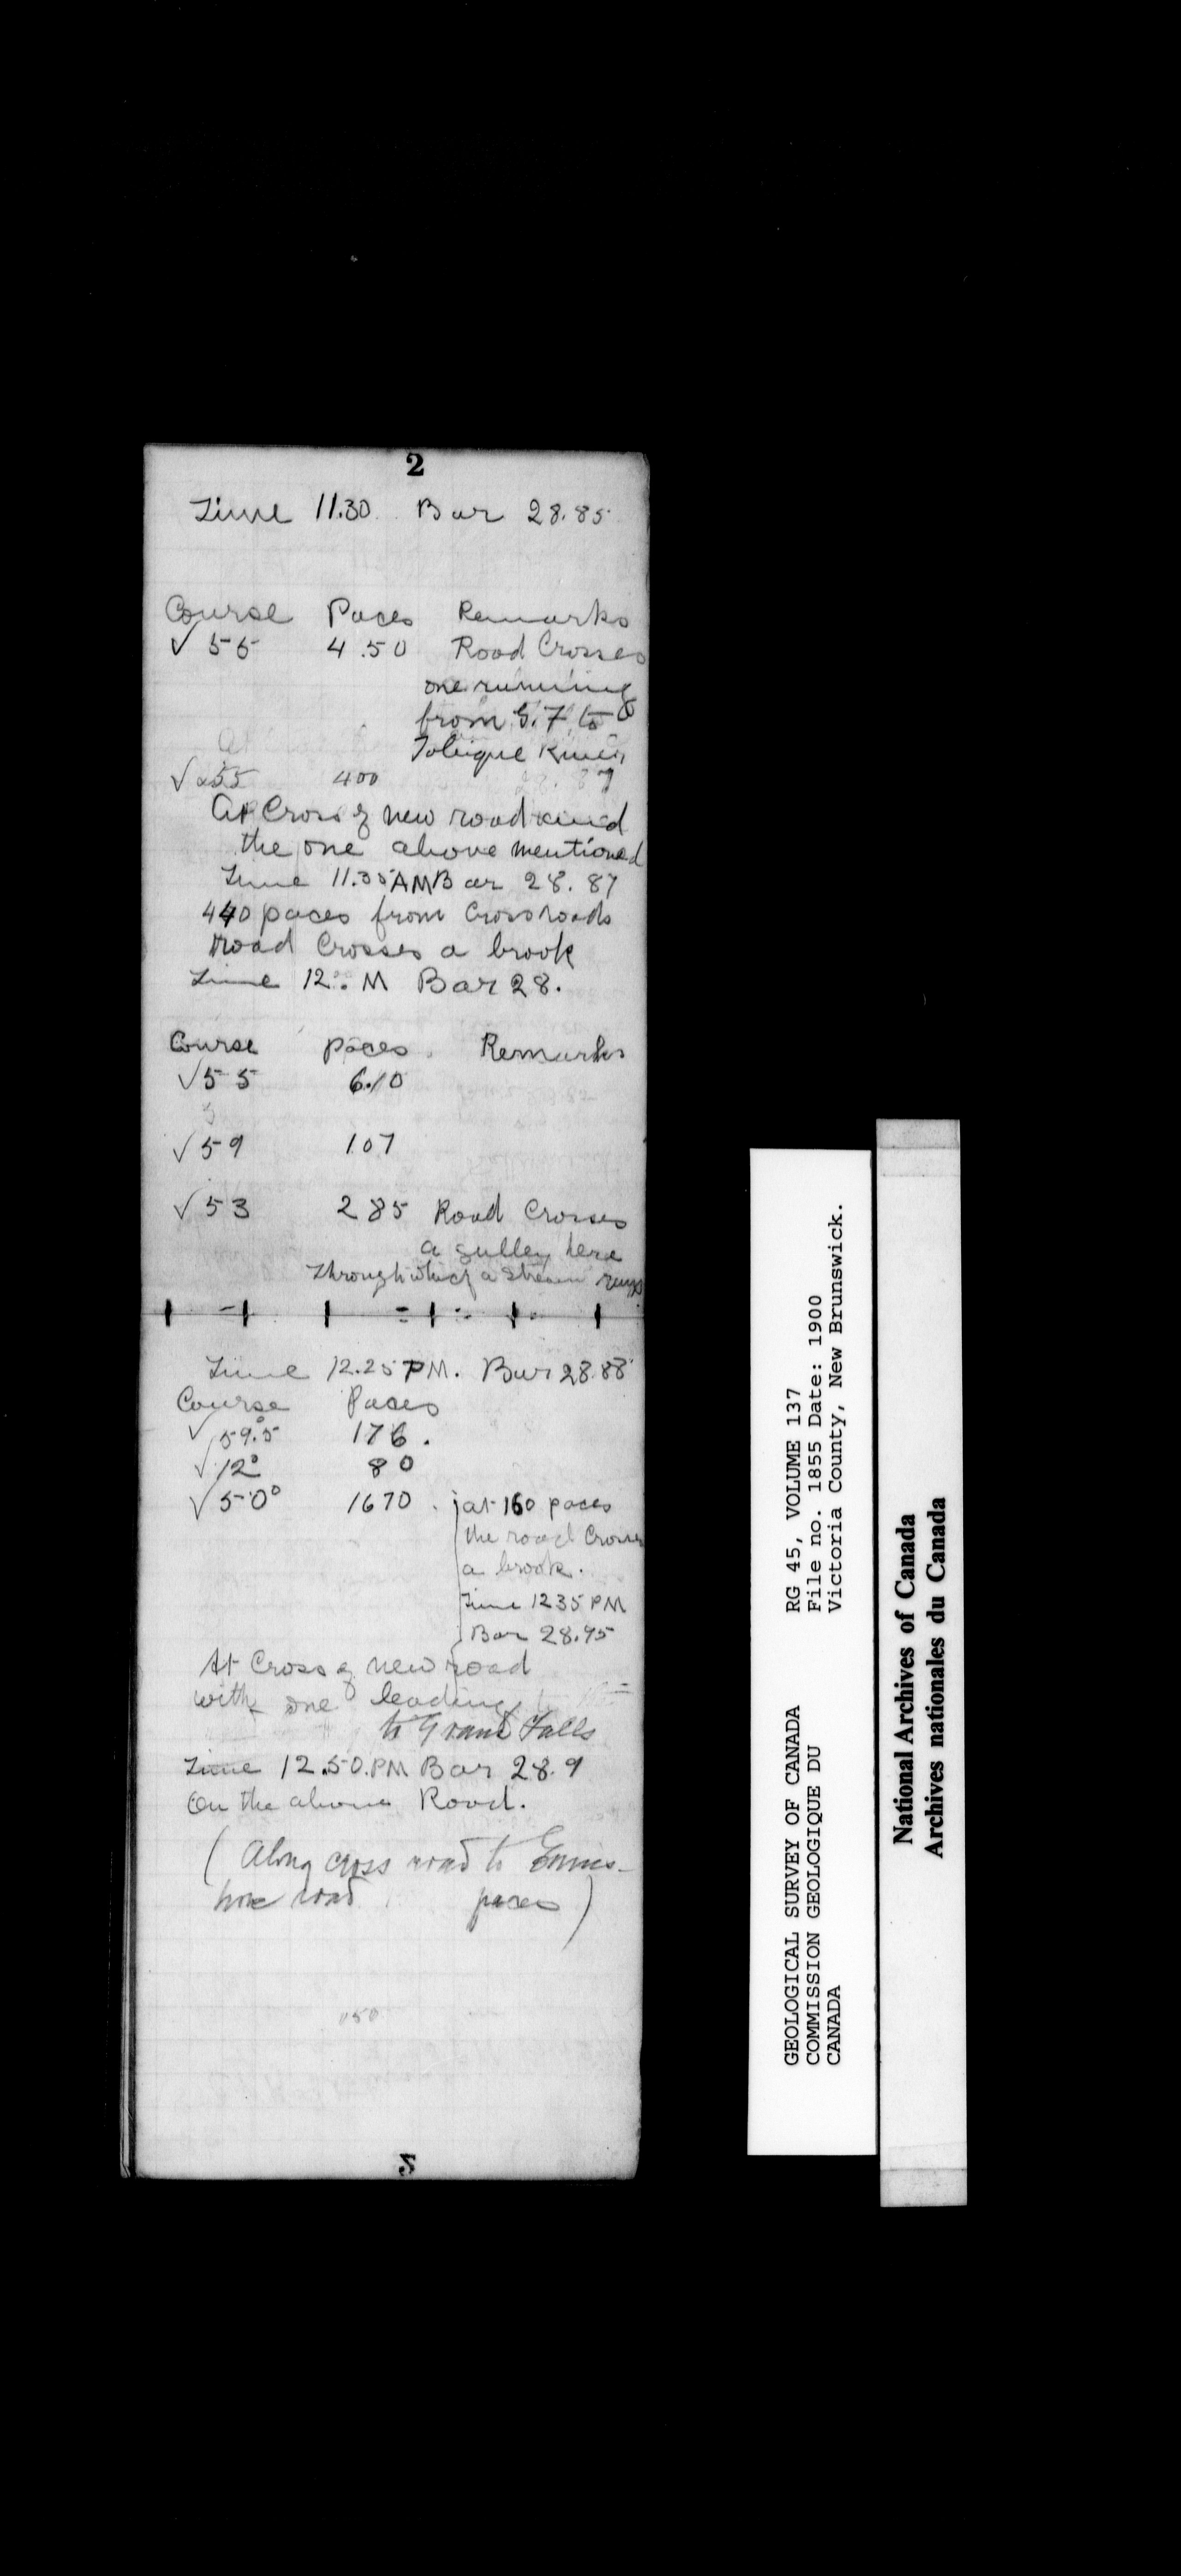 2
Time 11.30 Bar 28.85
Course Paces Remarks
√ 55 4.50 Road Crosses
one running
from G.F. to
Tobique River
√ 55 400
At Cross of new road and
the one above mentioned
Time 11.35 AM Bar 28.87
440 paces from Crossroads
road Crosses a brook
Time 12 M Bar 28.
Course paces Remarks
√ 55 6.10
√ 59 107
√ 53 285 Road Crosses
a gulley here
through which a stream runs
Time 12.25 PM. Bar 28.88
Course Paces
√ 59.5° 176.
√ 12° 80
√ 50° 1670 . at 160 paces
the road Crosses
a brook.
Time 1235 PM
Bar 28.95
At Cross of new road
with one leading
to Grand Falls
Time 12.50.PM Bar 28.9
On the above Road.
(Along cross road to Ennis-
hore road paces)
050
5
GEOLOGICAL SURVEY OF CANADA RG 45, VOLUME 137
COMMISSION GEOLOGIQUE DU File no. 1855 Date: 1900
CANADA Victoria County, New Brunswick.
National Archives of Canada
Archives nationales du Canada